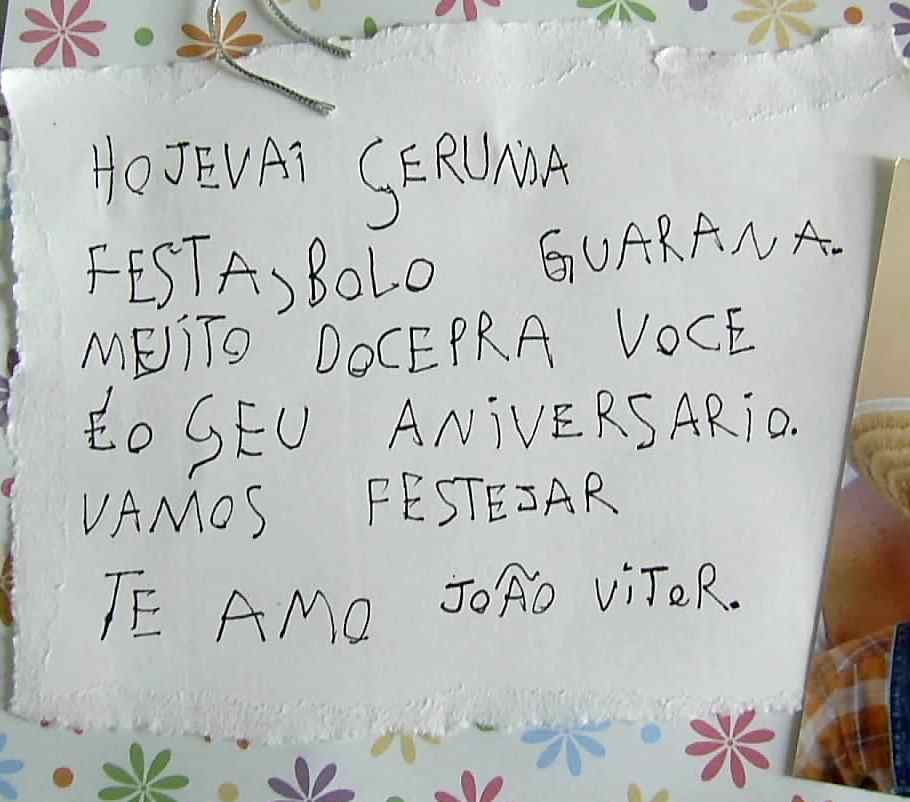 HOJEVAI SERUMA
FESTA, BOLO GUARANA.
MEJITO DOCEPRA VOCE
ÉO SEU ANIVERSARIO.
VAMOS FESTEJAR
TE AMO JOÃO VITOR.